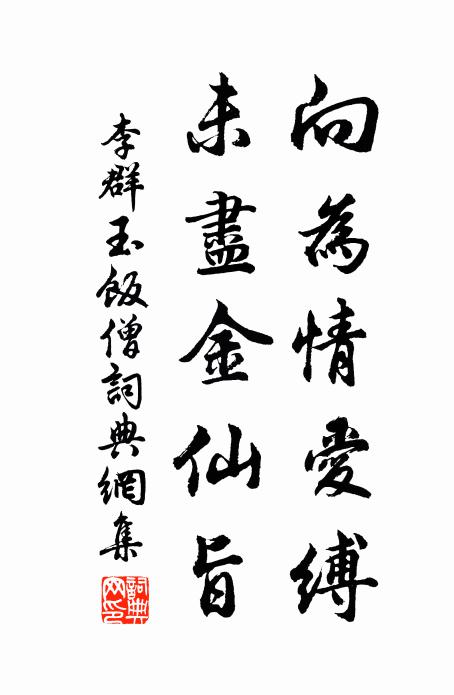 向為情愛縛
未盡金仙旨
李群玉飯僧詞典網集
詞典
网印